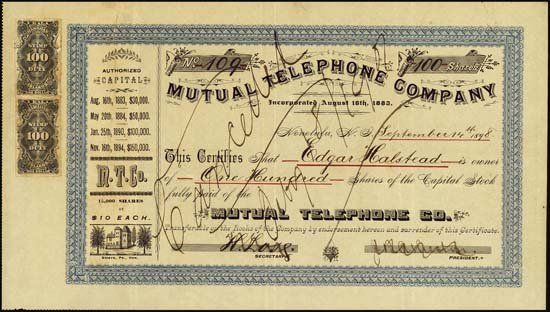 STAMP
100
DUTY
STAMP
100
DUTY
AUTHORIZED
CAPITAL
Aug. 16th, 1883, $30,000.
May 20th, 1884, $50,000.
Jan. 25th, 1890, $100,000.
Nov. 16th, 1894, $150,000.
M. T. Co.
15,000 SHARES
AT
$10 EACH.
No. 109
100 Shares
MUTUAL TELEPHONE COMPANY
Incorporated August 16th, 1883.
Honolulu, September 14th 1898
This Certifies that Edgar Halstead is owner
of One Hundred Shares of the Capital Stock
fully paid of the
MUTUAL TELEPHONE CO.
Transferable on the Books of the Company by endorsement hereon and surrender of this Certificate.
SECRETARY.
PRESIDENT.
Cancelled